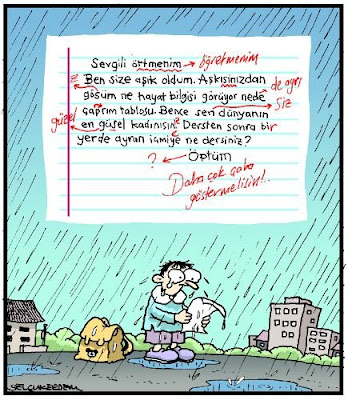 Sevgili örtmenim → öğretmenim
Ben size aşık oldum. Aşkısinızdan de ayrı
gösüm ne hayat bilgisi görüyor nede siz
güzel çaprım tablosu. Bence sen dünyanın
en güsel kadınısın. Dersten sonra bir
yerde ayran içmiye ne dersiniz?
? ← Öptüm
Daha çok çaba
göstermelisin!..
SELÇUK ERDEM